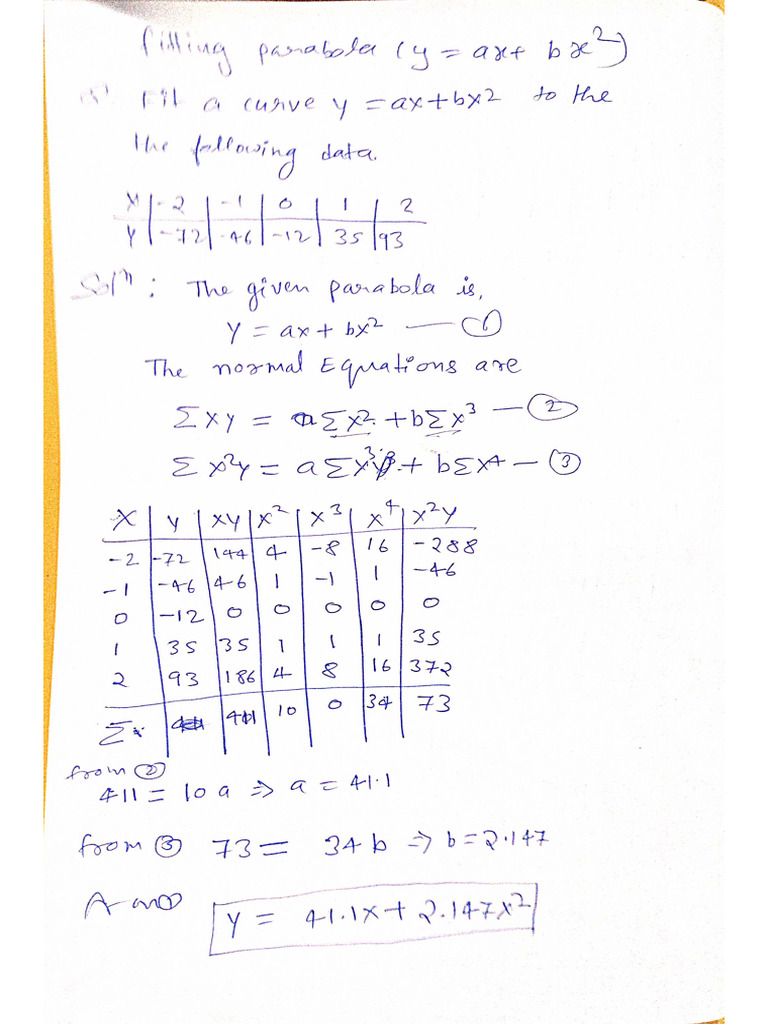 Fitting parabola (y = ax + bx²)
Fit a curve y = ax+bx2 to the
the following data.
X | -2 | -1 | 0 | 1 | 2
Y | -72 | -46 | -12 | 35 | 93
Solⁿ: The given parabola is,
Y = ax + bx² — ①
The normal Equations are
Σxy = aΣx² + bΣx³ — ②
Σx²y = aΣx³ + bΣx⁴ — ③
X | y | xy | x² | x³ | x⁴ | x²y
-2 | -72 | 144 | 4 | -8 | 16 | -288
-1 | -46 | 46 | 1 | -1 | 1 | -46
0 | -12 | 0 | 0 | 0 | 0 | 0
1 | 35 | 35 | 1 | 1 | 1 | 35
2 | 93 | 186 | 4 | 8 | 16 | 372
Σ | 411 | 10 | 0 | 34 | 73
from ②
411 = 10 a ⇒ a = 41.1
from ③ 73 = 34 b ⇒ b = 2.147
Y = 41.1x + 2.147x²